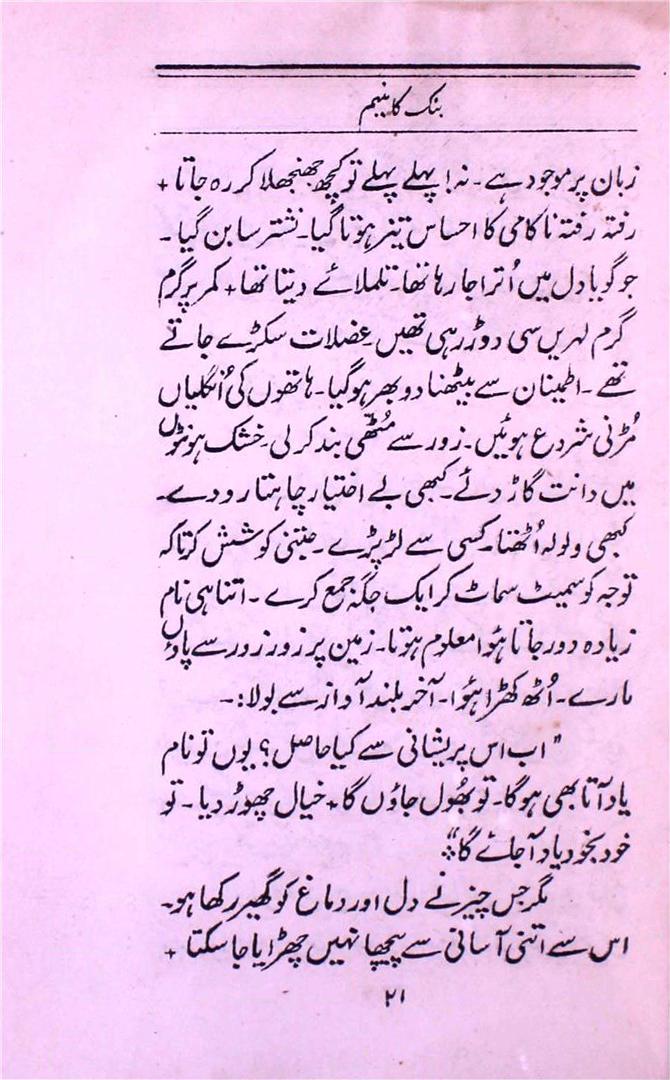 بنک کا نیم
زبان پر موجود ہے۔ نہ! پہلے پہلے تو کچھ جھنجھلا کر رہ جاتا +
رفتہ رفتہ ناکامی کا احساس تیز ہوتا گیا۔ نشتر سا بن گیا۔
جو گویا دل میں اُترا جا رہا تھا۔ تلملائے دیتا تھا + کمر پر گرم
گرم لہریں سی دوڑ رہی تھیں۔ عضلات سکڑے جاتے
تھے۔ اطمینان سے بیٹھنا دوبھر ہو گیا۔ ہاتھوں کی اُنگلیاں
مُڑنی شروع ہوئیں۔ زور سے مُٹھی بند کر لی۔ خشک ہونٹوں
میں دانت گاڑ دئے۔ کبھی بے اختیار چاہتا رو دے۔
کبھی ولولہ اُٹھتا۔ کسی سے لڑ پڑے۔ جتنی کوشش کرتا کہ
توجہ کو سمیٹ سماٹ کر ایک جگہ جمع کرے۔ اتنا ہی نام
زیادہ دور جاتا ہُوا معلوم ہوتا۔ زمین پر زور زور سے پاؤں
مارے۔ اُٹھ کھڑا ہُوا۔ آخر بلند آواز سے بولا:۔
"اب اس پریشانی سے کیا حاصل؟ یوں تو نام
یاد آتا بھی ہو گا۔ تو بھُول جاؤں گا + خیال چھوڑ دیا۔ تو
خود بخود یاد آجائے گا"
مگر جس چیز نے دل اور دماغ کو گھیر رکھا ہو۔
اس سے اتنی آسانی سے پیچھا نہیں چھڑایا جا سکتا +
۲۱